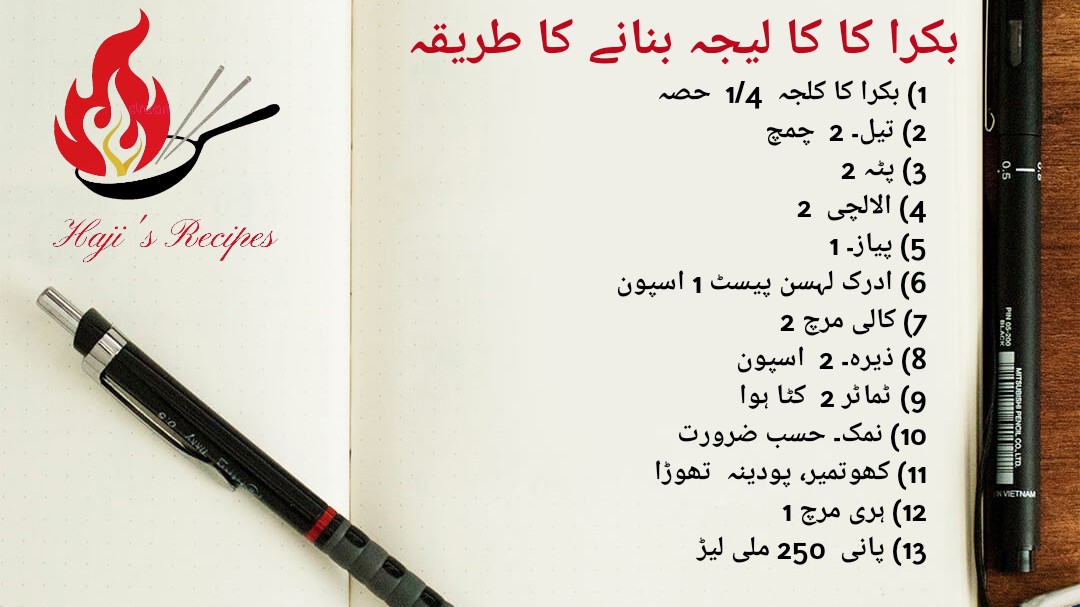 بکرا کا کا لیجہ بنانے کا طریقہ
1) بکرا کا کلجہ 1/4 حصہ
2) تیل۔ 2 چمچ
3) پٹہ 2
4) الالچی 2
5) پیاز۔ 1
6) ادرک لہسن پیسٹ 1 اسپون
7) کالی مرچ 2
8) ذیرہ۔ 2 اسپون
9) ٹماٹر 2 کٹا ہوا
10) نمک۔ حسب ضرورت
11) کھوتمیر، پودینہ تھوڑا
12) ہری مرچ 1
13) پانی 250 ملی لیڑ
Haji 's Recipes
0.5
PIN 05-200
BLACK
MITSUBISHI PENCIL CO., LTD.
IN VIETNAM